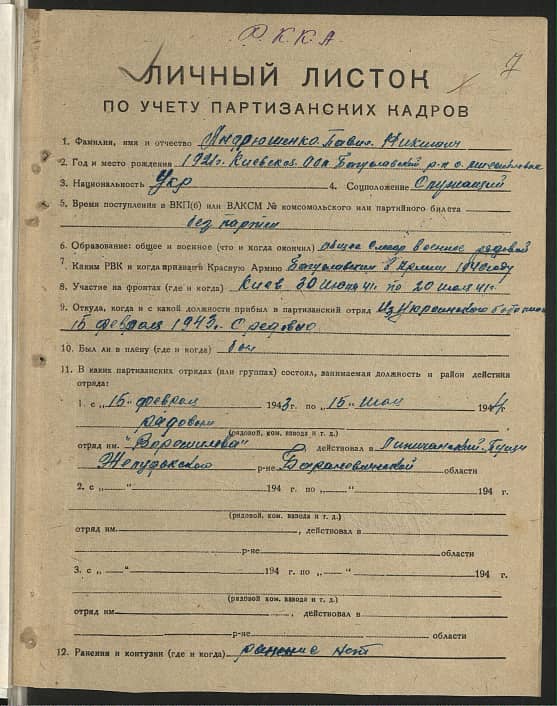 Р.К.К.А
7
ЛИЧНЫЙ ЛИСТОК
ПО УЧЕТУ ПАРТИЗАНСКИХ КАДРОВ
1. Фамилия, имя и отчество Андрюшенко Павел Никитич
2. Год и место рождения 1921г. Киевской Обл Богуславский р-н с.
3. Национальность Укр 4. Соцположение Служащий
5. Время поступления в ВКП(б) или ВЛКСМ № комсомольского или партийного билета
без партии
6. Образование: общее и военное (что и когда окончил) общее военное рядовой
7. Каким РВК и когда призван в Красную Армию Богуславским в 1940 году
8. Участие на фронтах (где и когда) Киев 30 июня 41г. по 20 июля 41г.
9. Откуда, когда и с какой должности прибыл в партизанский отряд Из Украинского
15 февраля 1943г. С рядовых
10. Был ли в плену (где и когда)
11. В каких партизанских отрядах (или группах) состоял, занимаемая должность и район действия
отряда:
1. с „15" февраля 1943г. по „15" 1944г.
рядовым
(рядовой, ком. взвода и т. д.)
отряд им. "Ворошилова" действовал в Пуще
Желудокского р-не Барановичской области
2. с „ " 194 г. по „ " 194 г.
(рядовой, ком. взвода и т. д.)
отряд им. , действовал в
р-не области
3. с „ " 194 г. по „ " 194 г.
(рядовой, ком. взвода и т. д.)
отряд им , действовал в
р-не области
12. Ранения и контузии (где и когда) ранение нет